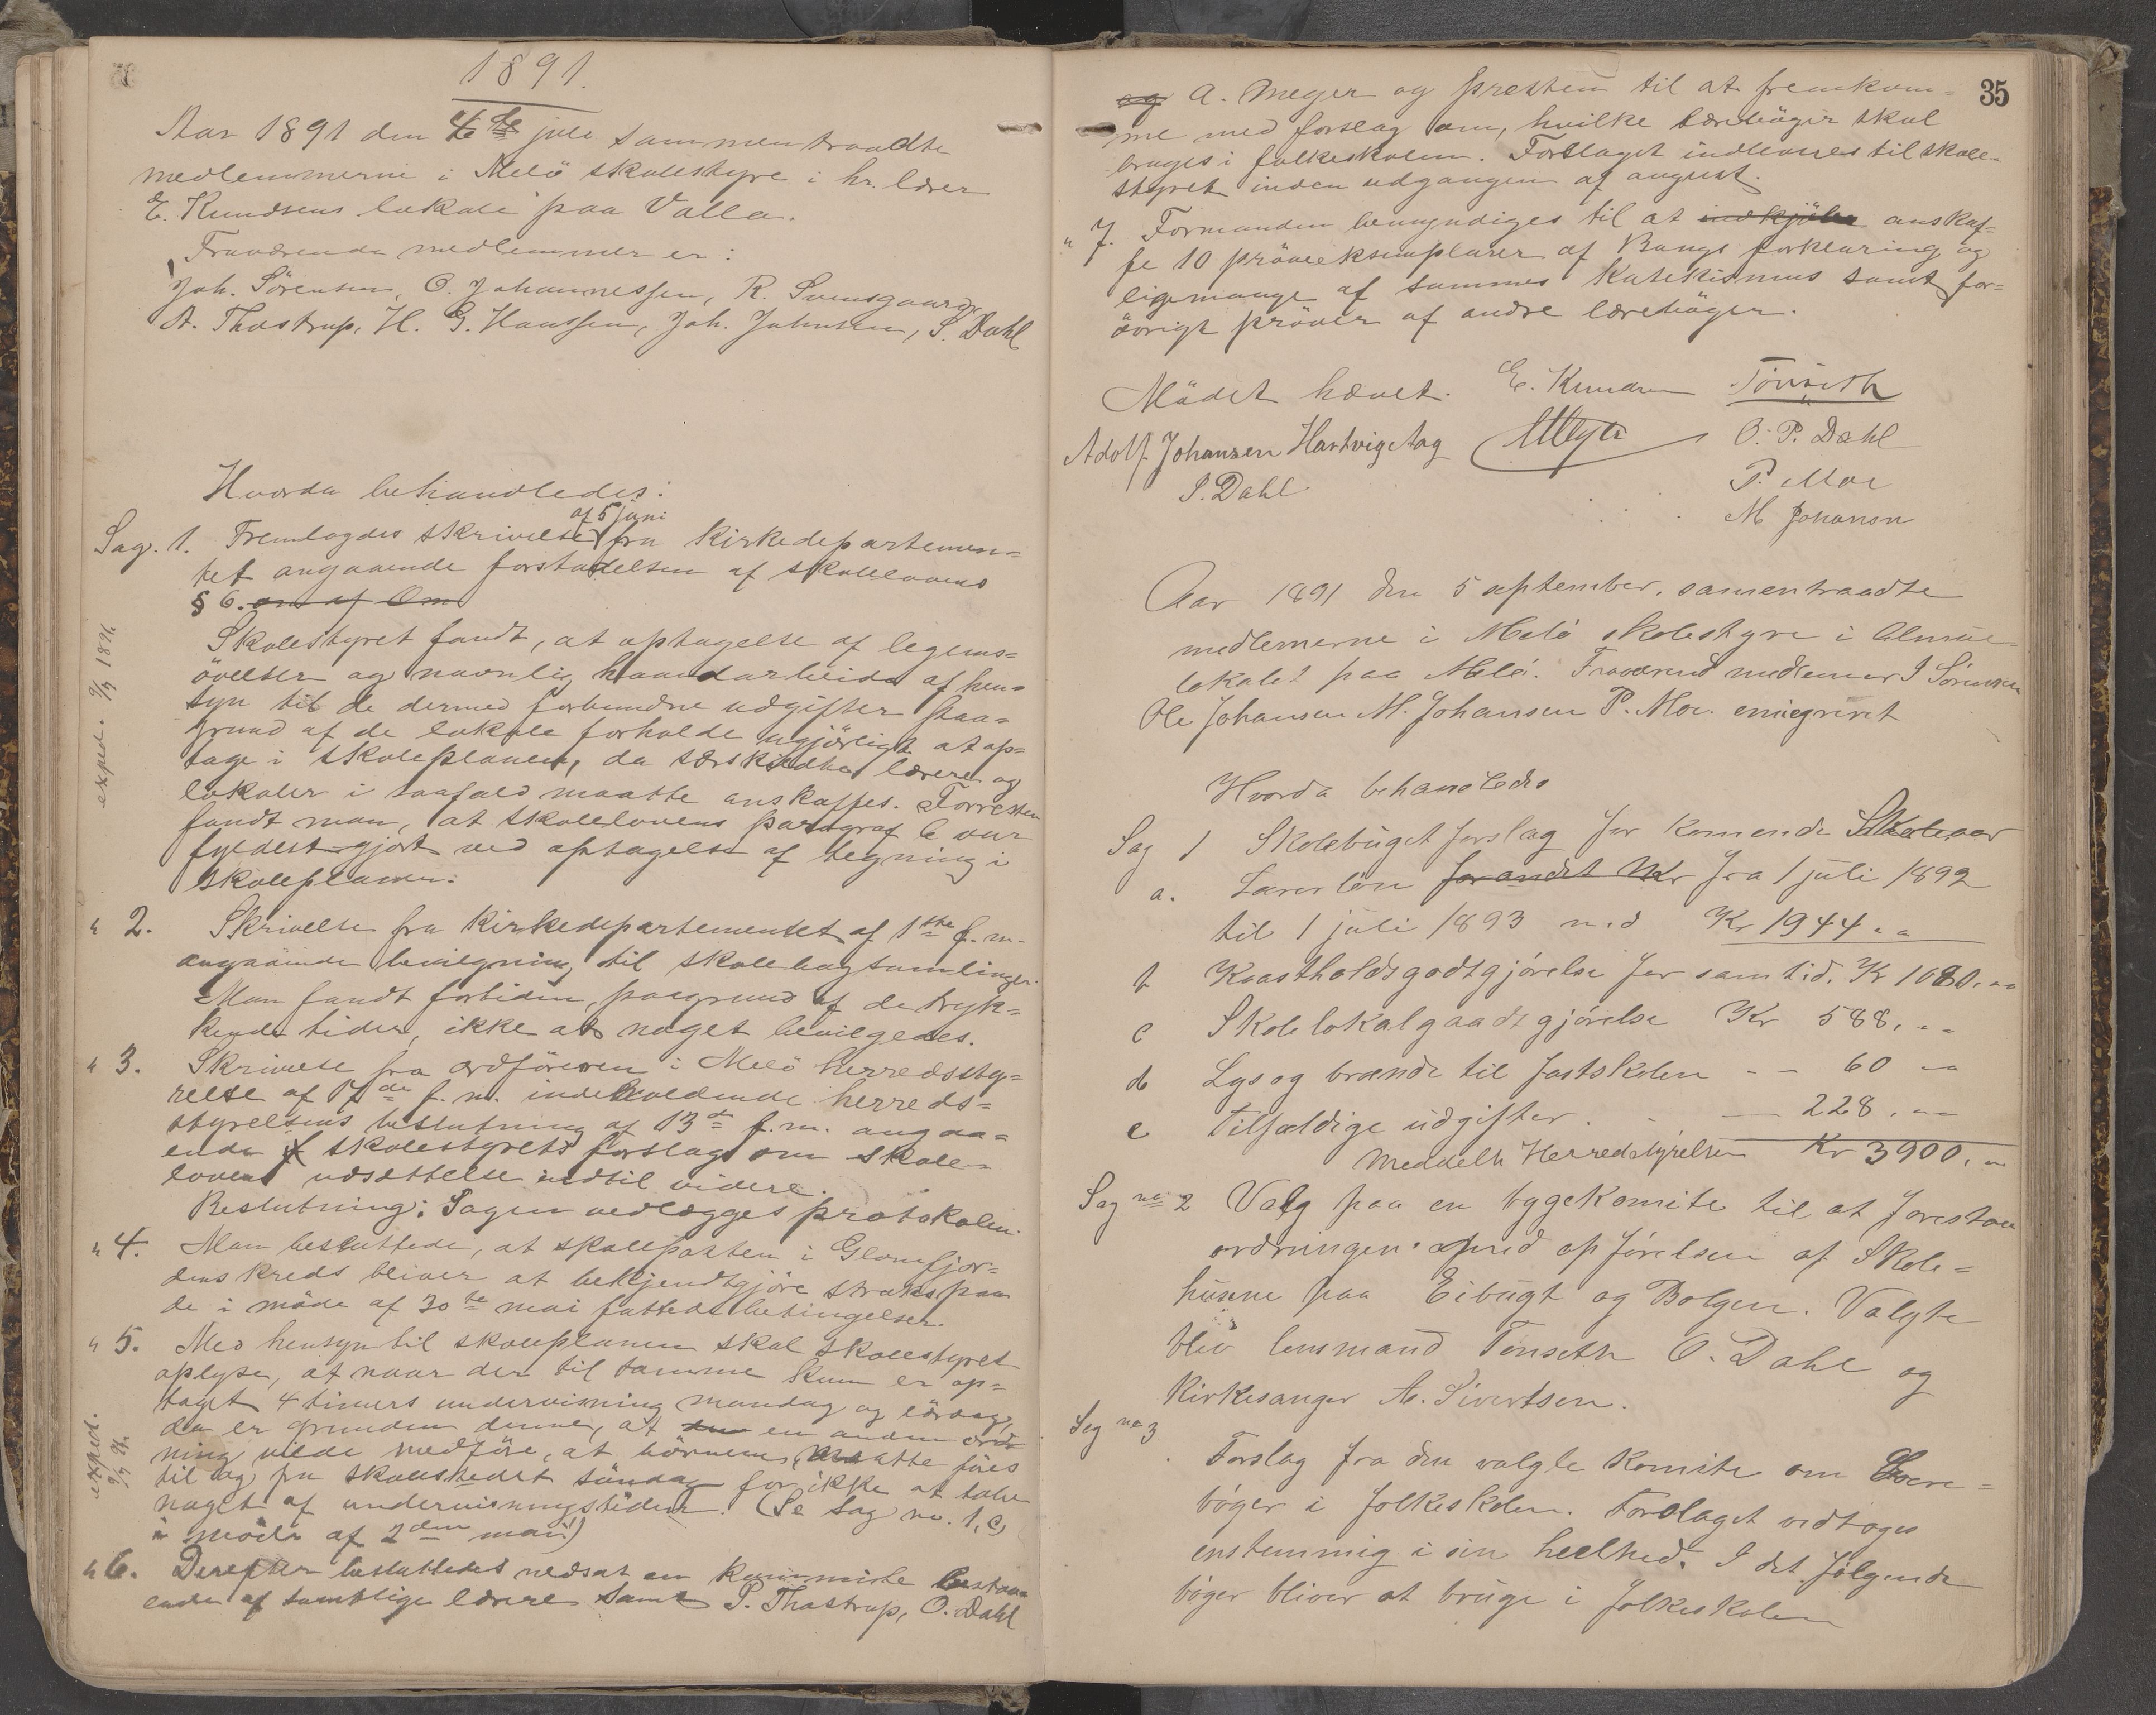 1891.
Aar 1891 den 4de juli sammentraadte
medlemmerne i Melö skolestyre i hr. lærer
E. Knudsens lokale paa Valla.
Fraværende medlemmer er:
Joh. Sörensen, O. Johannessen, R. Svensgaard,
A. Thostrup, H. G. Hanssen, Joh. Johnsen, S. Dahl
Hvorda behandledes:
af 5 juni
Sag. 1. Fremlagdes skrivelse fra Kirkedepartemen=
tet angaaende forstaaelsen af skolelovens
§ 6. om af Om
Skolestyret fandt, at optagelse af legems=
övelser og navnlig haandarbeide af hen=
syn til de dermed forbundne udgifter paa=
grund af de lokale forholde ugjörligt at op=
tage i skoleplanen, da særskildte lærere og
lokaler i saafald maatte anskaffes. Forresten
fandt man, at skolelovens paragraf 6 var
fyldestgjort ved optagelse af tegning i
skoleplanen.
exped. 9/7 1891.
" 2. Skrivelse fra Kirkedepartementet af 1ste f. m.
angaaende bevilgning til skolebogsamlinger.
Man fandt fortiden, paagrund af de tryk=
kende tider, ikke at noget bevilgedes.
" 3. Skrivelse fra ordföreren i Melö herredssty=
relse af 17de f. m. indeholdende herreds=
styrelsens beslutning af 13de f. m. angaa=
ende af skolestyrets forslag om skole=
lovens udsættelse indtil videre.
Beslutning: Sagen vedlægges protokolen.
" 4. Man besluttede, at skoleposten i Glomfjor=
dens kreds bliver at bekjendtgjöre straks paa
de i möde af 30te mai fattede betingelser.
" 5. Med hensyn til skoleplanen skal skolestyret
oplyse, at naar der til samme kun er op=
taget 4 timers undervisning mandag og lördag,
da er grunden denne, at en anden ord=
ning vilde medföre, at börnene maatte föres
til og fra skolestedet söndag for ikke at tabe
noget af undervisningstiden. (Se sag no. 1, c,
i möde af 2den mai)
exped. 9/7 91.
" 6. Derefter besluttedes nedsat en kommite bestaa=
ende af samtlige lærere samt P. Thostrup, O. Dahl
35
og A. Meyer og presten til at fremkom=
me med forslag om, hvilke lærebögir skal
bruges i folkeskolen. Forslaget indleveres til skole=
styret inden udgangen af august.
" 7. Formanden bemyndiges til at indkjöbe anskaf=
fe 10 pröveeksemplarer af Bangs forklaring og
ligemange af sammes Katekismus samt for=
övrigt pröver af andre læreböger.
Mödet hævet. E. Knudsen Tönseth
Adolf Johansen Hartvig Aag AMeyer O. P. Dahl
S. Dahl P. Moe
M Johansen
Aar 1891 den 5 september. samentraadte
medlemerne i Melö skolestyre i Almue
lokalet paa Melö. Fraværend medlemer J Sörensen
Ole Johansen M. Johansen P. Moe. emigreret
Hvorda behandledes
Sag 1 Skolebuget forslag for komende Skoleaar
a. Lærerlön for andet Kr fra 1 juli 1892
til 1 juli 1893 med Kr 1944. "
b Kaastholdsgodtgjörelse for samtid. Kr 1080. "
c Skolelokalgaadtgjörelse Kr 588. "
d Lys og brænde til fastskolen - - 60 "
e Tilfældige udgifter. - - 228. "
Meddelt Herredstyrelsen Kr 3900. "
Sag no 2 Valg paa en bygekomite til at forestaa
ordningen med opförelsen af Skole=
husene paa Eibugt og Bolgen. Valgte
blev lensmand Tönseth O. Dahl og
Kirkesanger A. Sivertsen.
Sag no 3
Forslag fra den valgte komite om Lære=
böger i folkeskolen. Forslaget vedtoges
enstemmig i sin heelhed. I det fölgende
böger bliver at bruge i folkeskolen